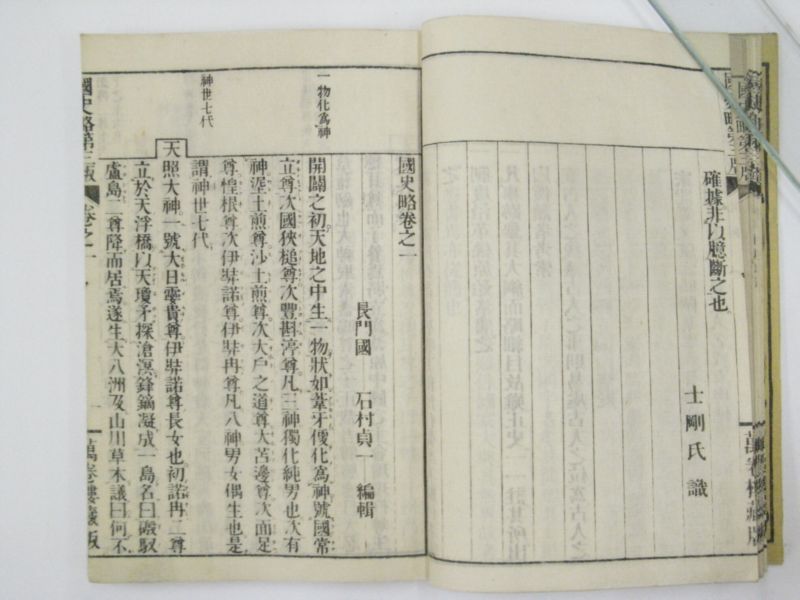 確據非以臆斷之也
士剛氏識
萬卷樓藏版
國史略卷之一
長門國 石村貞一 編輯
一物化爲神
開闢之初天地之中生一物狀如葦牙便化爲神號國常
立尊次國狹槌尊次豐斟渟尊凡三神獨化純男也次有
神埿土煎尊沙土煎尊次大戶之道尊大苫邊尊次面足
尊惶根尊次伊弉諾尊伊弉冉尊凡八神男女偶生也是
謂神世七代
神世七代
天照大神一號大日孁貴尊伊弉諾尊長女也初諾冉二尊
立於天浮橋以天瓊矛探滄溟鋒鏑凝成一島名曰磤馭
盧島二尊降而居焉遂生大八洲及山川草木議曰何不
國史略第三版 卷之一 一 萬卷樓藏版